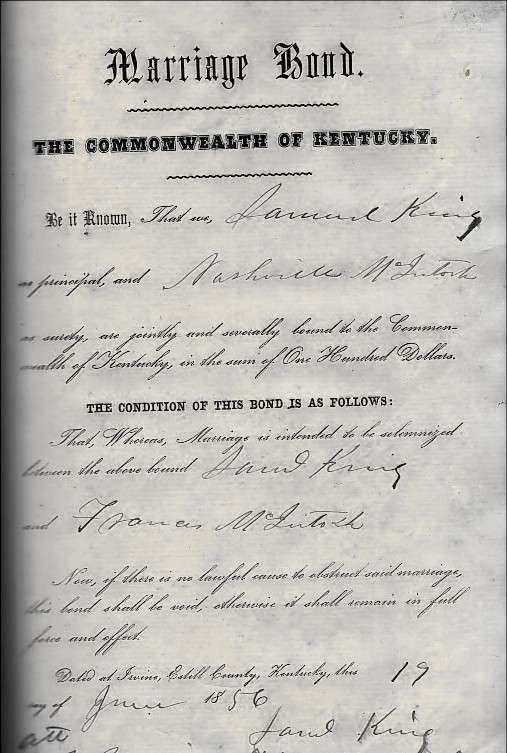 Marriage Bond.
THE COMMONWEALTH OF KENTUCKY.
Be it Known, That we, Samuel King
as principal, and Nashville McIntosh
as surety, are jointly and severally bound to the Common-
wealth of Kentucky, in the sum of One Hundred Dollars.
THE CONDITION OF THIS BOND IS AS FOLLOWS:
That, Whereas, Marriage is intended to be solemnized
between the above bound Saml King
and Frances McIntosh
Now, if there is no lawful cause to obstruct said marriage,
this bond shall be void, otherwise it shall remain in full
force and effect.
Dated at Irvine, Estill County, Kentucky, this 19
day of June 1856
Att Saml King